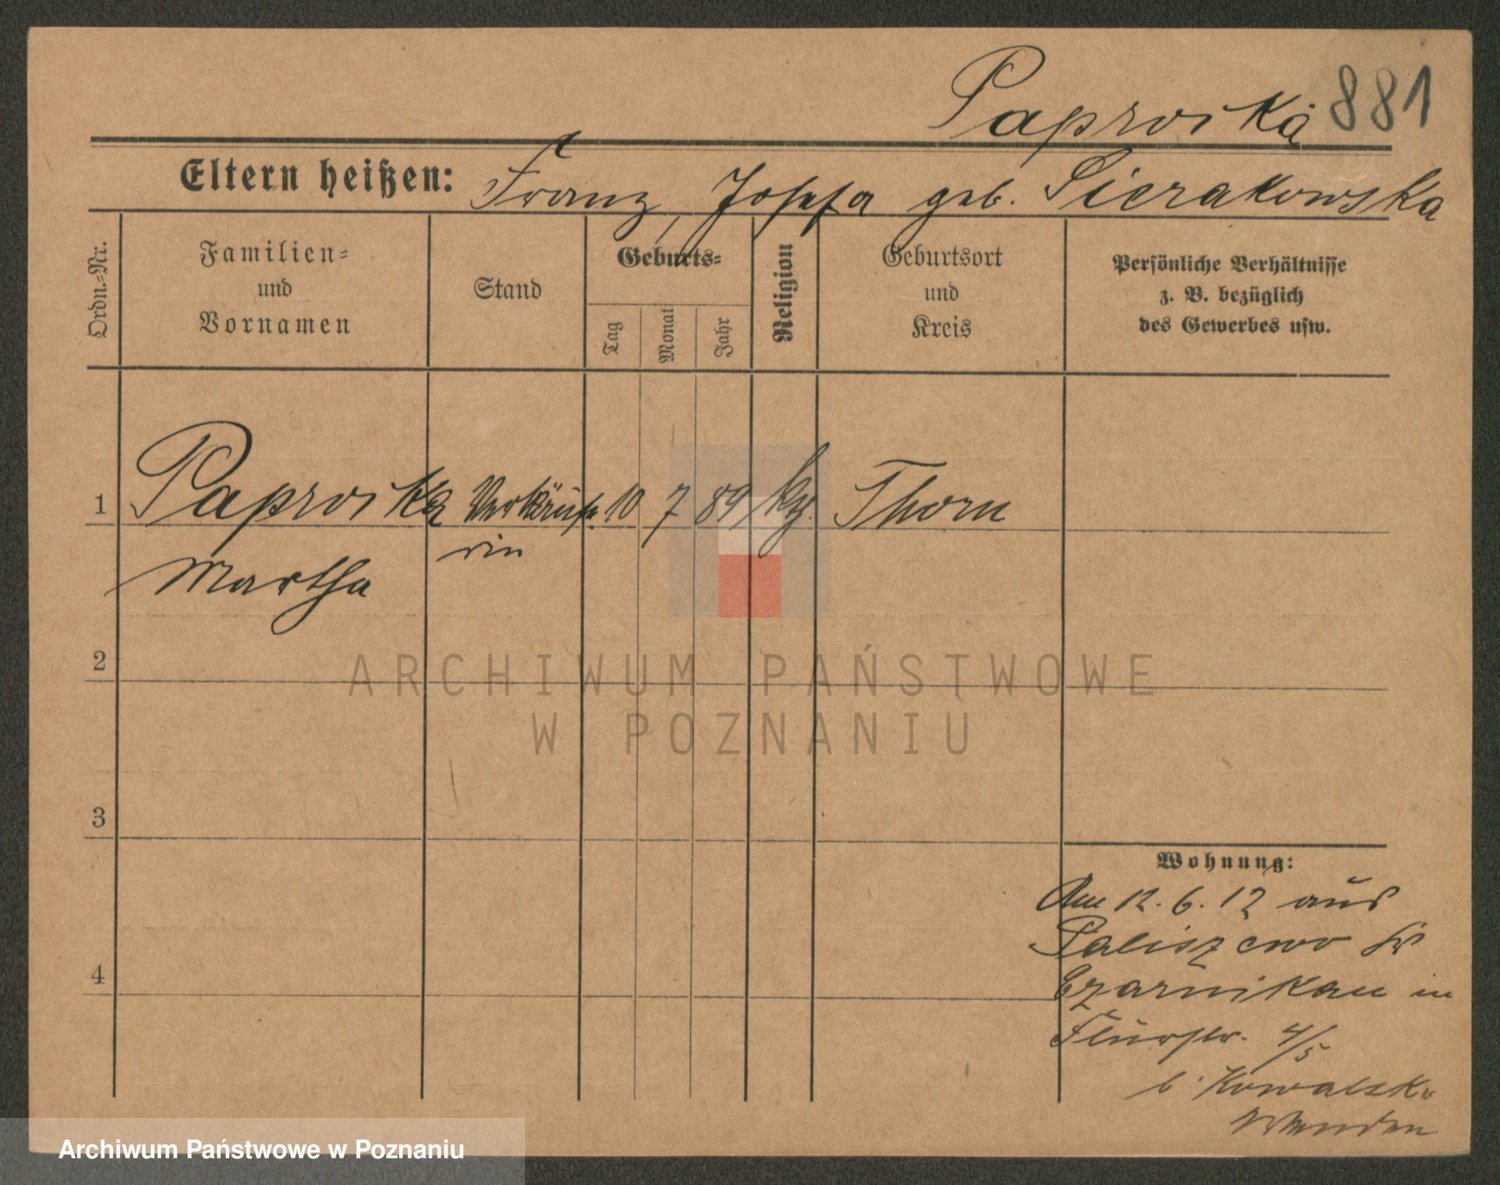 Paproika 881
Eltern heißen: Franz, Josefa geb. Sierakowska
Ordn.-Nr.
Familien-
und
Vornamen
Stand
Geburts-
Tag
Monat
Jahr
Religion
Geburtsort
und
Kreis
Persönliche Verhältnisse
z. B. bezüglich
des Gewerbes usw.
1 Paprocka Verkäufe- 10 7 89 kg. Thorn
rin
Martha
2
3
4
Wohnung:
Am 12.6.12 aus
Paliszewo Kr
Czarnikau in
Flurstr. 4/5
b. Kowalsk
ARCHIWUM PAŃSTWOWE
W POZNANIU
Archiwum Państwowe w Poznaniu